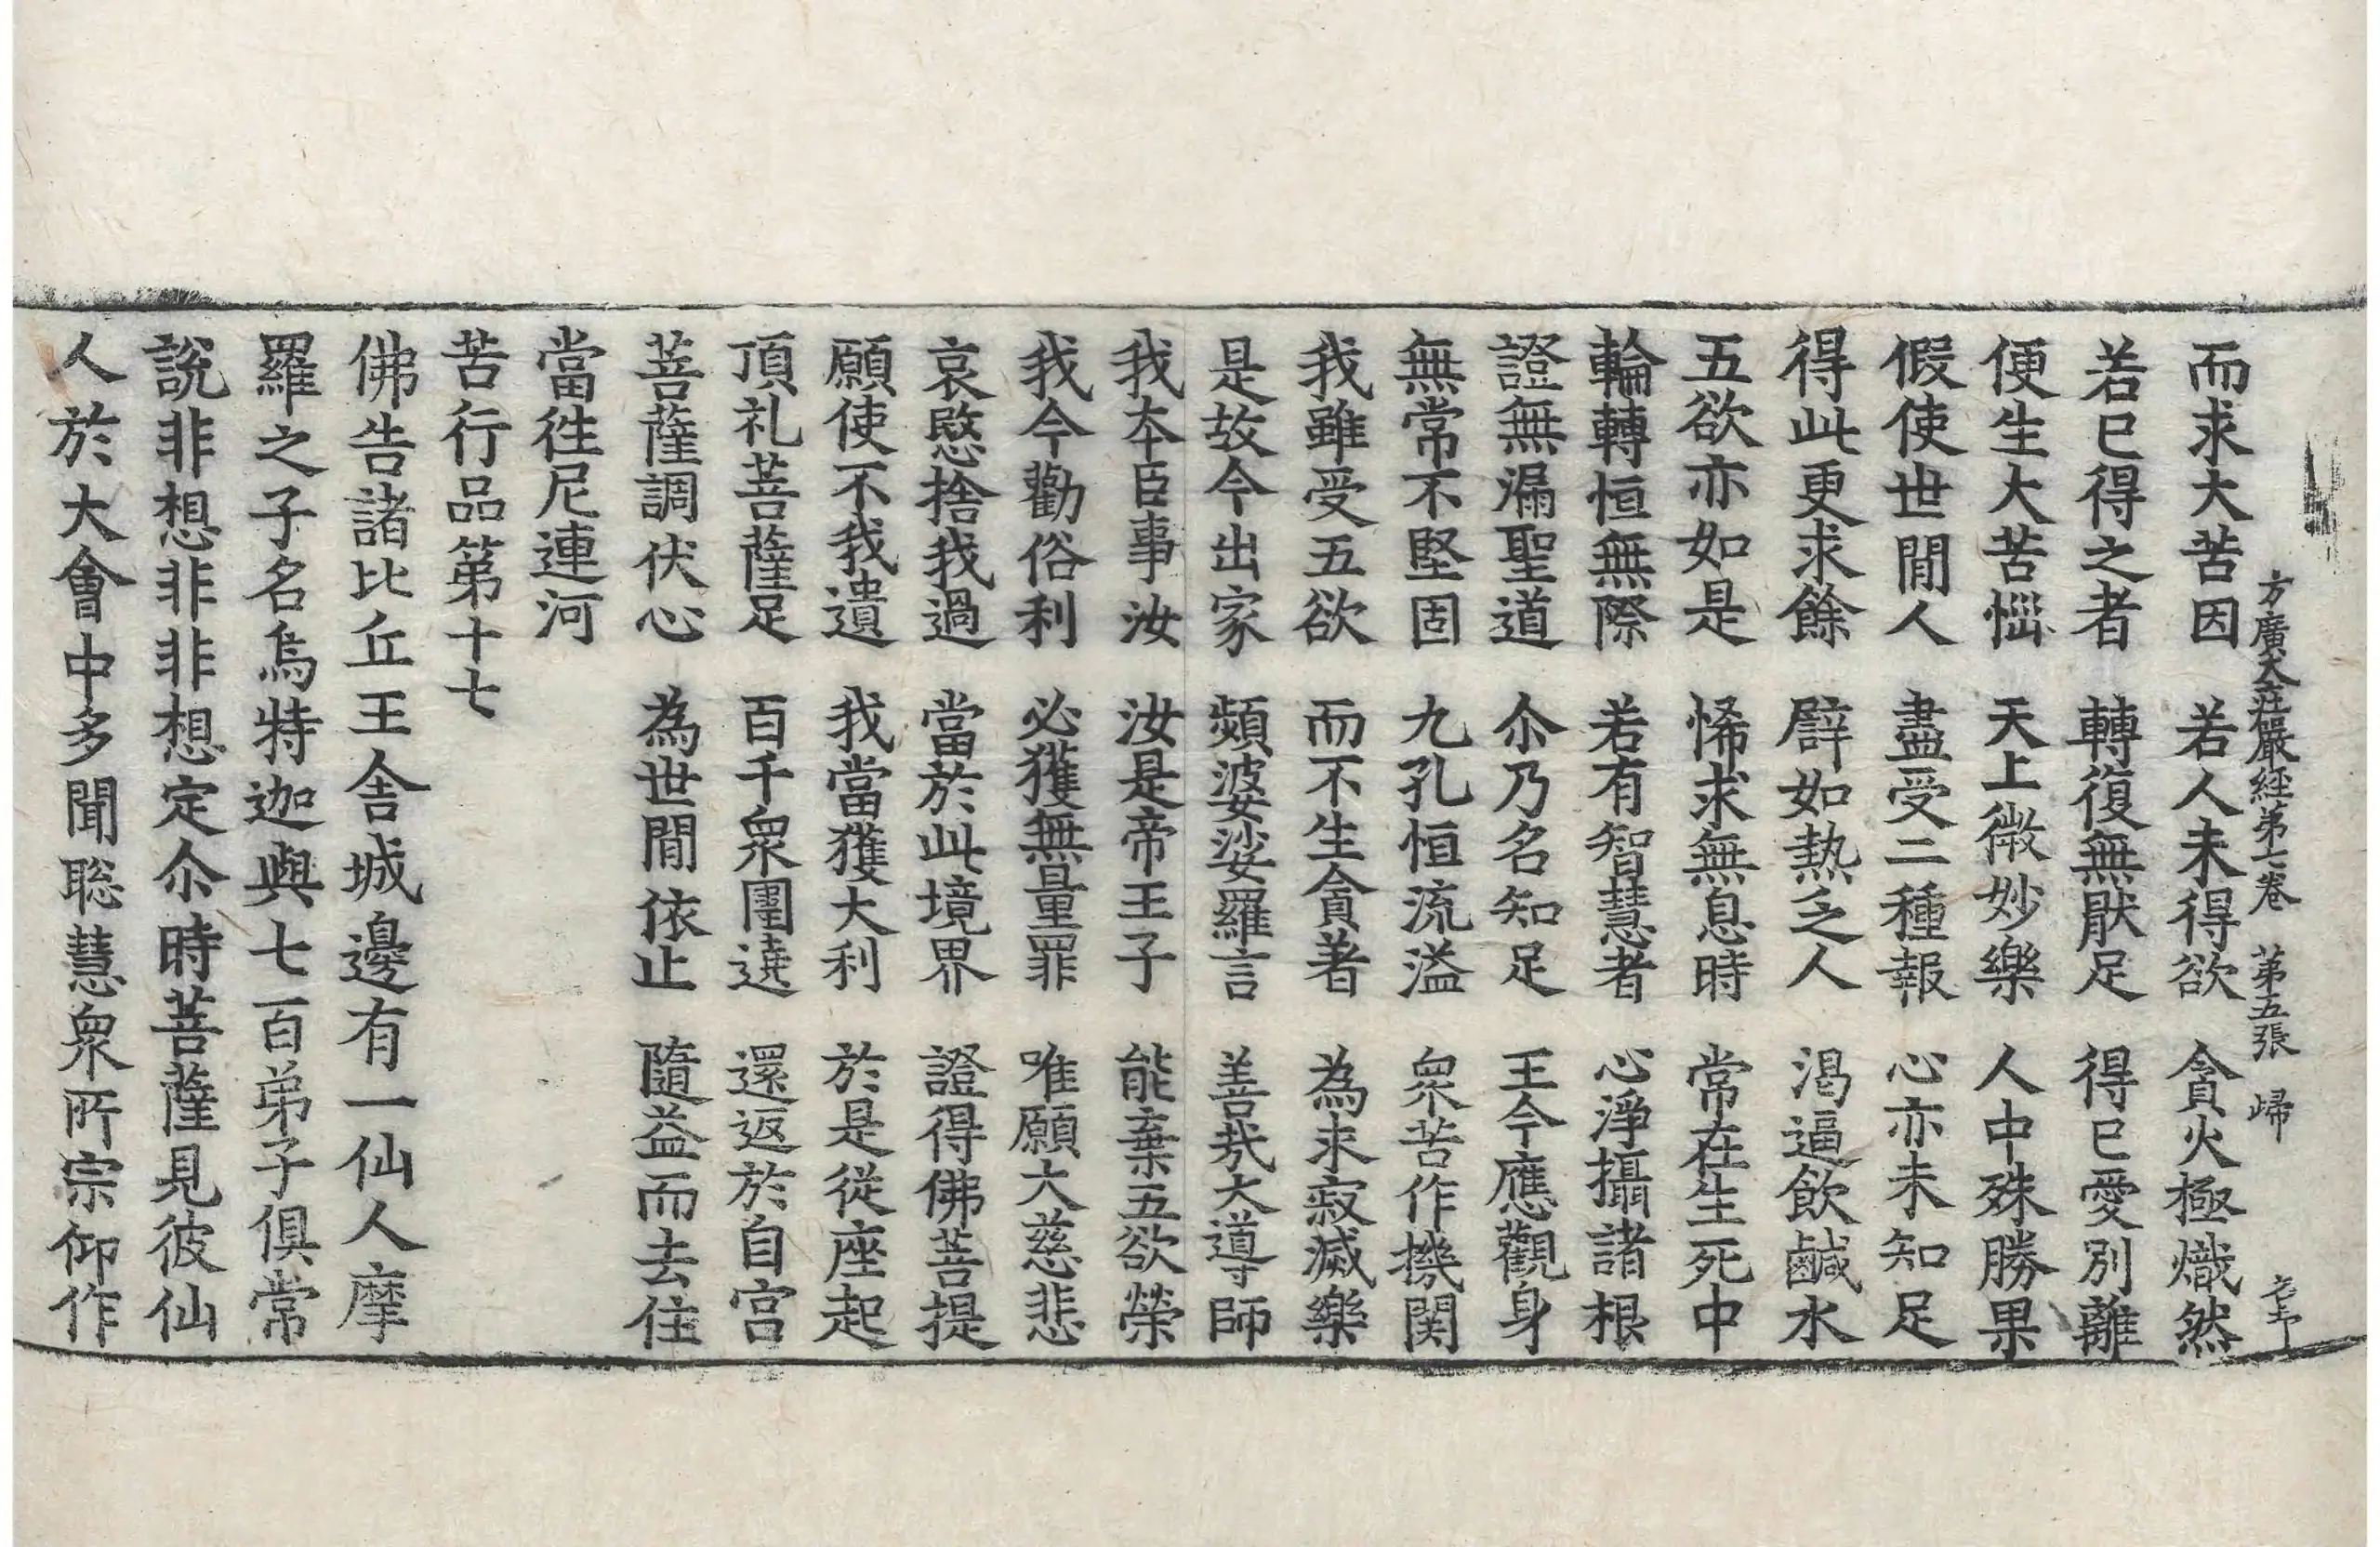 方廣大莊嚴經第七卷　第五張　歸
而求大苦因　若人未得欲　貪火極熾然
若已得之者　轉復無猒足　得已愛別離
便生大苦惱　天上微妙樂　人中殊勝果
假使世間人　盡受二種報　心亦未知足
得此更求餘　譬如熱乏人　渴逼飲鹹水
五欲亦如是　悕求無息時　常在生死中
輪轉恒無際　若有智慧者　心淨攝諸根
證無漏聖道　尒乃名知足　王今應觀身
無常不堅固　九孔恒流溢　衆苦作機関
我雖受五欲　而不生貪著　為求寂滅樂
是故今出家　頻婆娑羅言　善哉大導師
我本臣事汝　汝是帝王子　能棄五欲榮
我今勸俗利　必獲無量罪　唯願大慈悲
哀愍捨我過　當於此境界　證得佛菩提
願使不我遺　我當獲大利　於是從座起
頂礼菩薩足　百千衆圍遶　還返於自宮
菩薩調伏心　為世間依止　隨益而去住
當徃尼連河
苦行品第十七
佛告諸比丘王舍城邊有一仙人摩
羅之子名烏特迦與七百弟子俱常
說非想非非想定尒時菩薩見彼仙
人於大會中多聞聡慧衆所宗仰作